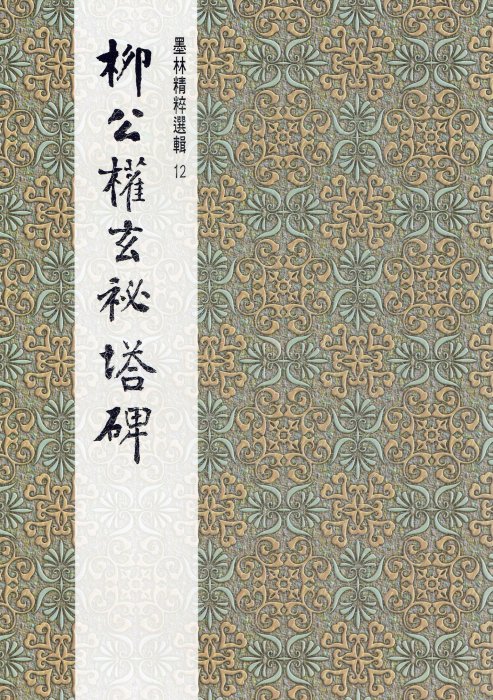 墨林精粹選輯 12
柳公權玄祕塔碑